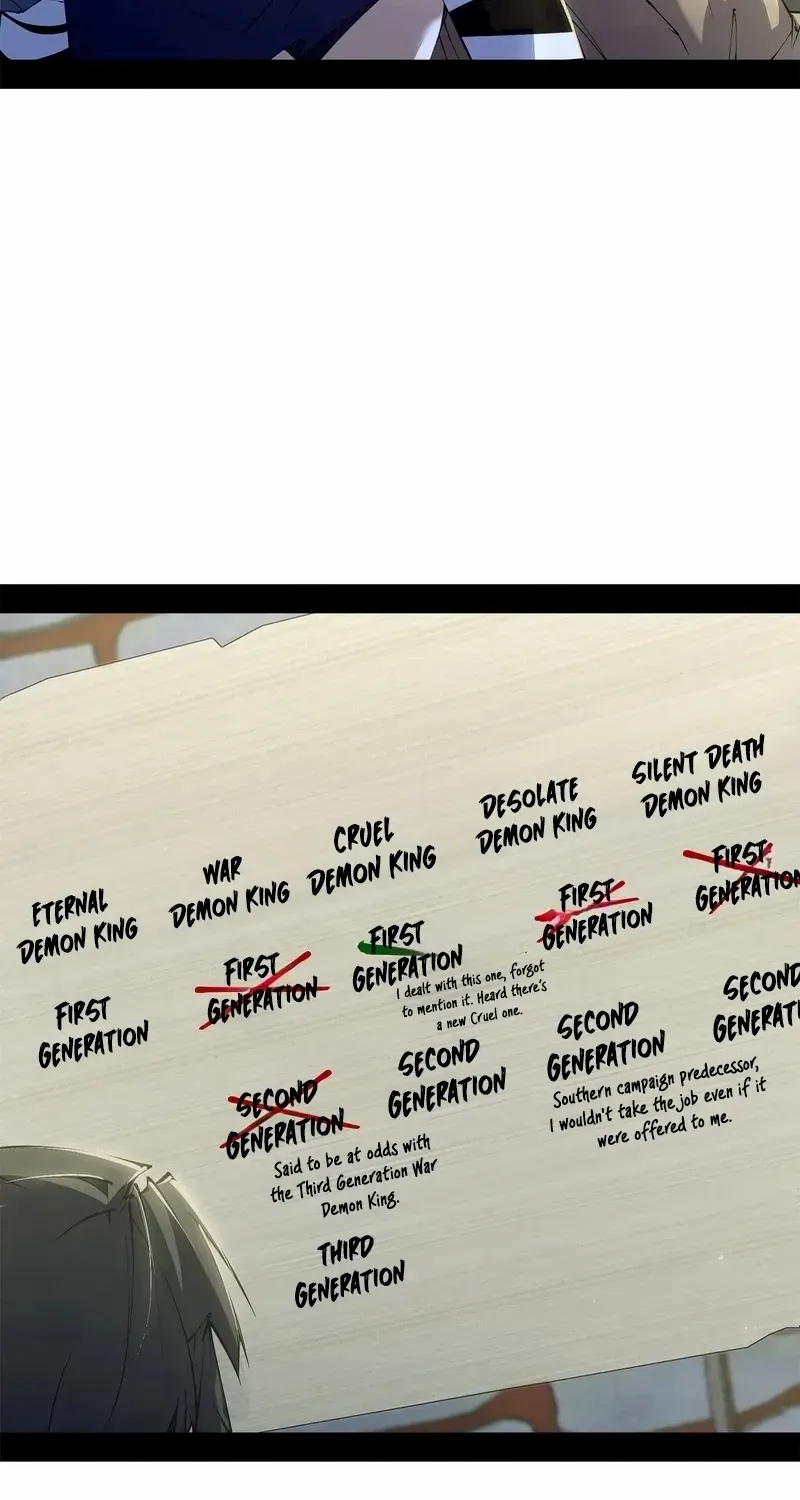 ETERNAL
DEMON KING
WAR
DEMON KING
CRUEL
DEMON KING
DESOLATE
DEMON KING
SILENT DEATH
DEMON KING
FIRST
GENERATION
FIRST
GENERATION
FIRST
GENERATION
I dealt with this one, forgot
to mention it. Heard there's
a new Cruel one.
FIRST
GENERATION
FIRST
GENERATION
SECOND
GENERATION
Said to be at odds with
the Third Generation War
Demon King.
SECOND
GENERATION
SECOND
GENERATION
Southern campaign predecessor,
I wouldn't take the job even if it
were offered to me.
SECOND
GENERATI
THIRD
GENERATION